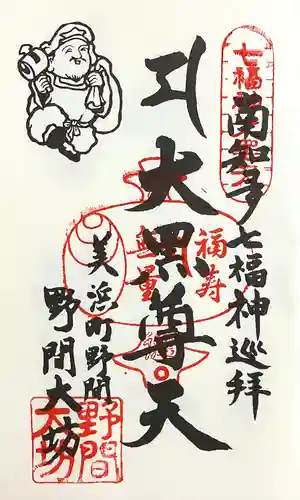 南知多七福神巡拝
大黒尊天
福寿
無量
美浜町野間
野間大坊
野間
大坊
七福